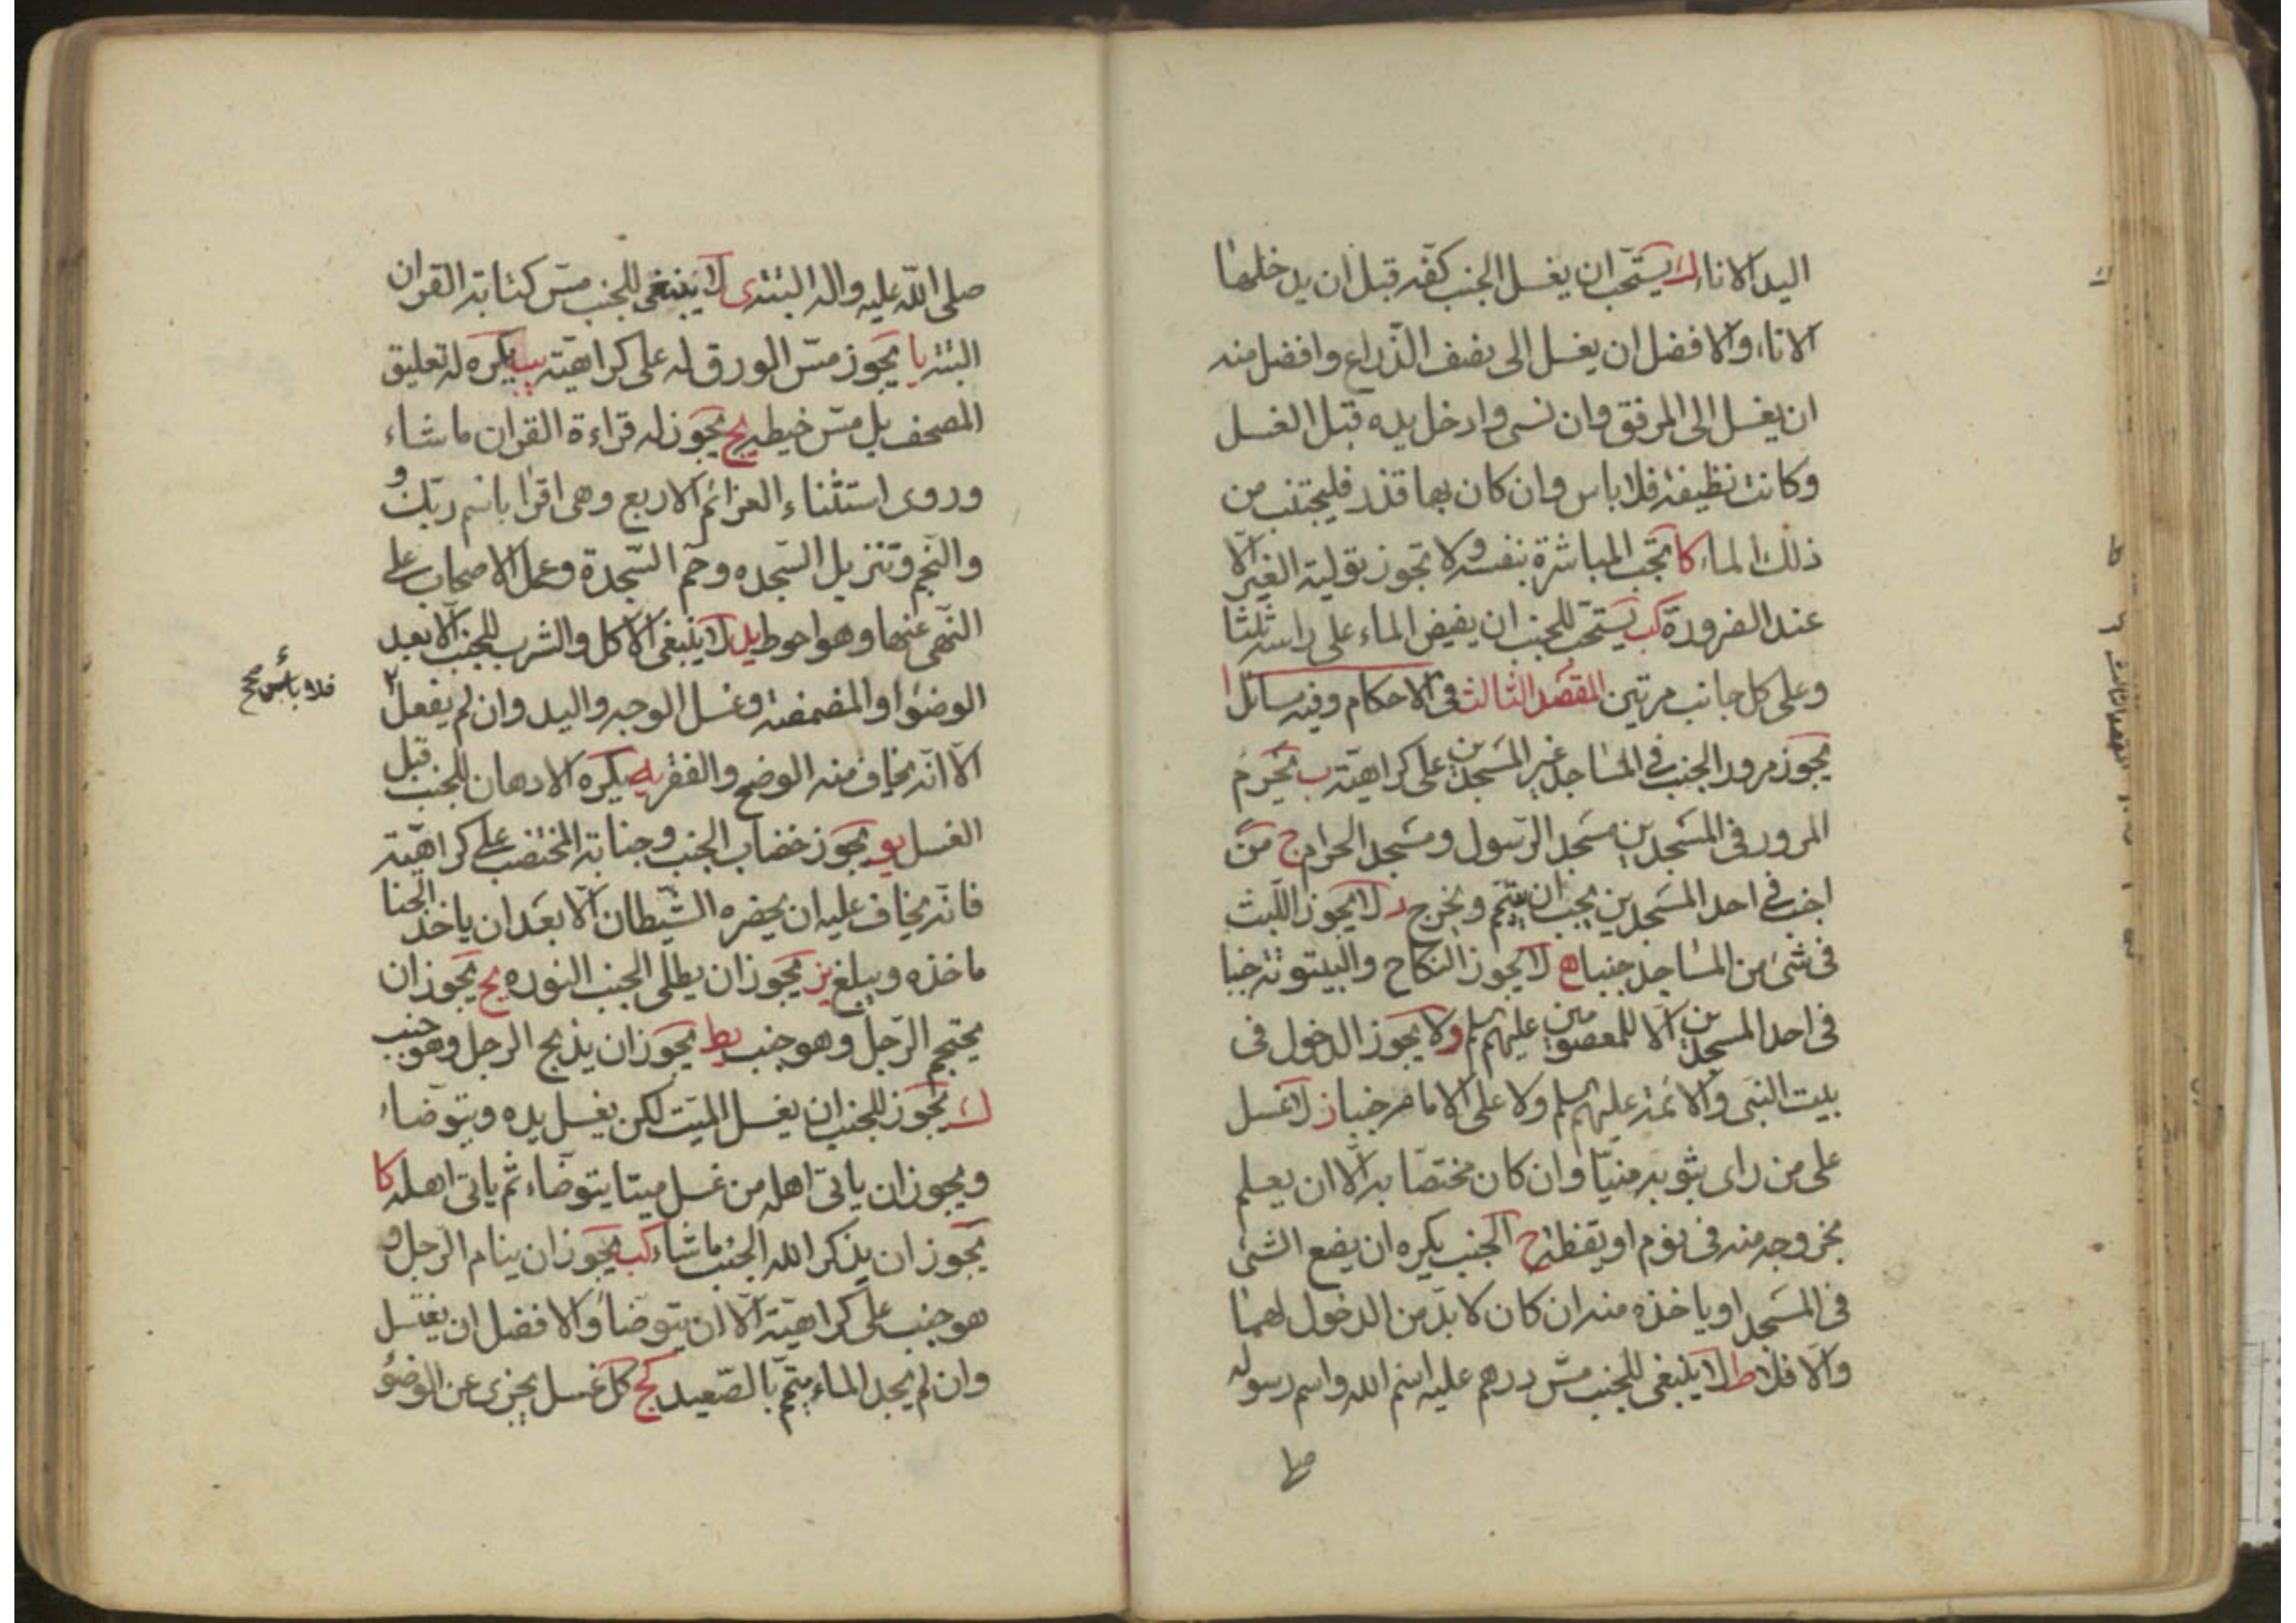 اليد الاناء ك يستحب ان يغسل الجنب كفه قبل ان يدخلها
الاناء والافضل ان يغسل الى نصف الذراع وافضل منه
ان يغسل الى المرفق وان نسى وادخل يده قبل الغسل
وكانت نظيفة فلا باس وان كان بها قذر فليجتنب من
ذلك الماء كا تجب المباشرة بنفسه ولا تجوز تولية الغير الّا
عند الضرورة كب يستحب للجنب ان يفيض الماء على راسه ثلثا
وعلى كل جانب مرتين المقصد الثالث فى الاحكام وفيه مسائل ا
يجوز مرور الجنب فى المساجد غير المسجدين على كراهية ب يحرم
المرور فى المسجدين مسجد الرسول ومسجد الحرام ج من
اجنب فى احد المسجدين يجب ان يتيمم ويخرج د لا يجوز اللبث
فى شئ من المساجد جنبا ه لا يجوز النكاح والبيتوتة جنبا
فى احد المسجدين الا للمعصومين عليهم السلم و لا يجوز الدخول فى
بيت النبى والائمة عليهم السلم ولا على الامام جنبا ز لا غسل
على من راى بثوبه منيّا وان كان مختصّا به الّا ان يعلم
بخروجه منه فى نوم او يقظة ح الجنب يكره ان يضع الشئ
فى المسجد او ياخذه منه ان كان لا بدّ من الدخول لهما
والّا فلا ط لا ينبغى للجنب مسّ درهم عليه اسم الله واسم رسوله
صلى الله عليه واله البتة ى لا ينبغى للجنب مسّ كتابة القران
البتة يا يجوز مسّ الورق له على كراهية يب يكره له تعليق
المصحف بل مسّ خيطه يج يجوز له قراءة القران ما شاء
وروى استثناء العزائم الاربع وهى اقرا باسم ربك و
والنجم وتنزيل السجده وحم السجدة وعمل الاصحاب على
النهى عنها وهو احوط يد لا ينبغى الاكل والشرب للجنب الا بعد
الوضوء او المضمضة وغسل الوجه واليد وان لم يفعل
فلا بأس صح
الّا انه يخاف منه الوضح والفقر يه يكره الادهان للجنب قبل
الغسل يو يجوز خضاب الجنب وجنابة المختضب على كراهية
فانه يخاف عليه ان يحضره الشيطان الّا بعد ان ياخذ الحنا
ماخذه ويبلغ يز يجوز ان يطلى الجنب النوره يح يجوز ان
يحتجم الرجل وهو جنب يط يجوز ان يذبح الرجل وهو جنب
ك يجوز للجنب ان يغسل الميت لكن يغسل يده ويتوضاء
ويجوز ان ياتى اهله من غسل ميتا يتوضاء ثم ياتى اهله كا
يجوز ان يذكر الله الجنب ما شاء كب يجوز ان ينام الرجل و
هو جنب على كراهية الّا ان يتوضا والافضل ان يغتسل
وان لم يجد الماء يتيمم بالصعيد كج كل غسل يجزى عن الوضؤ